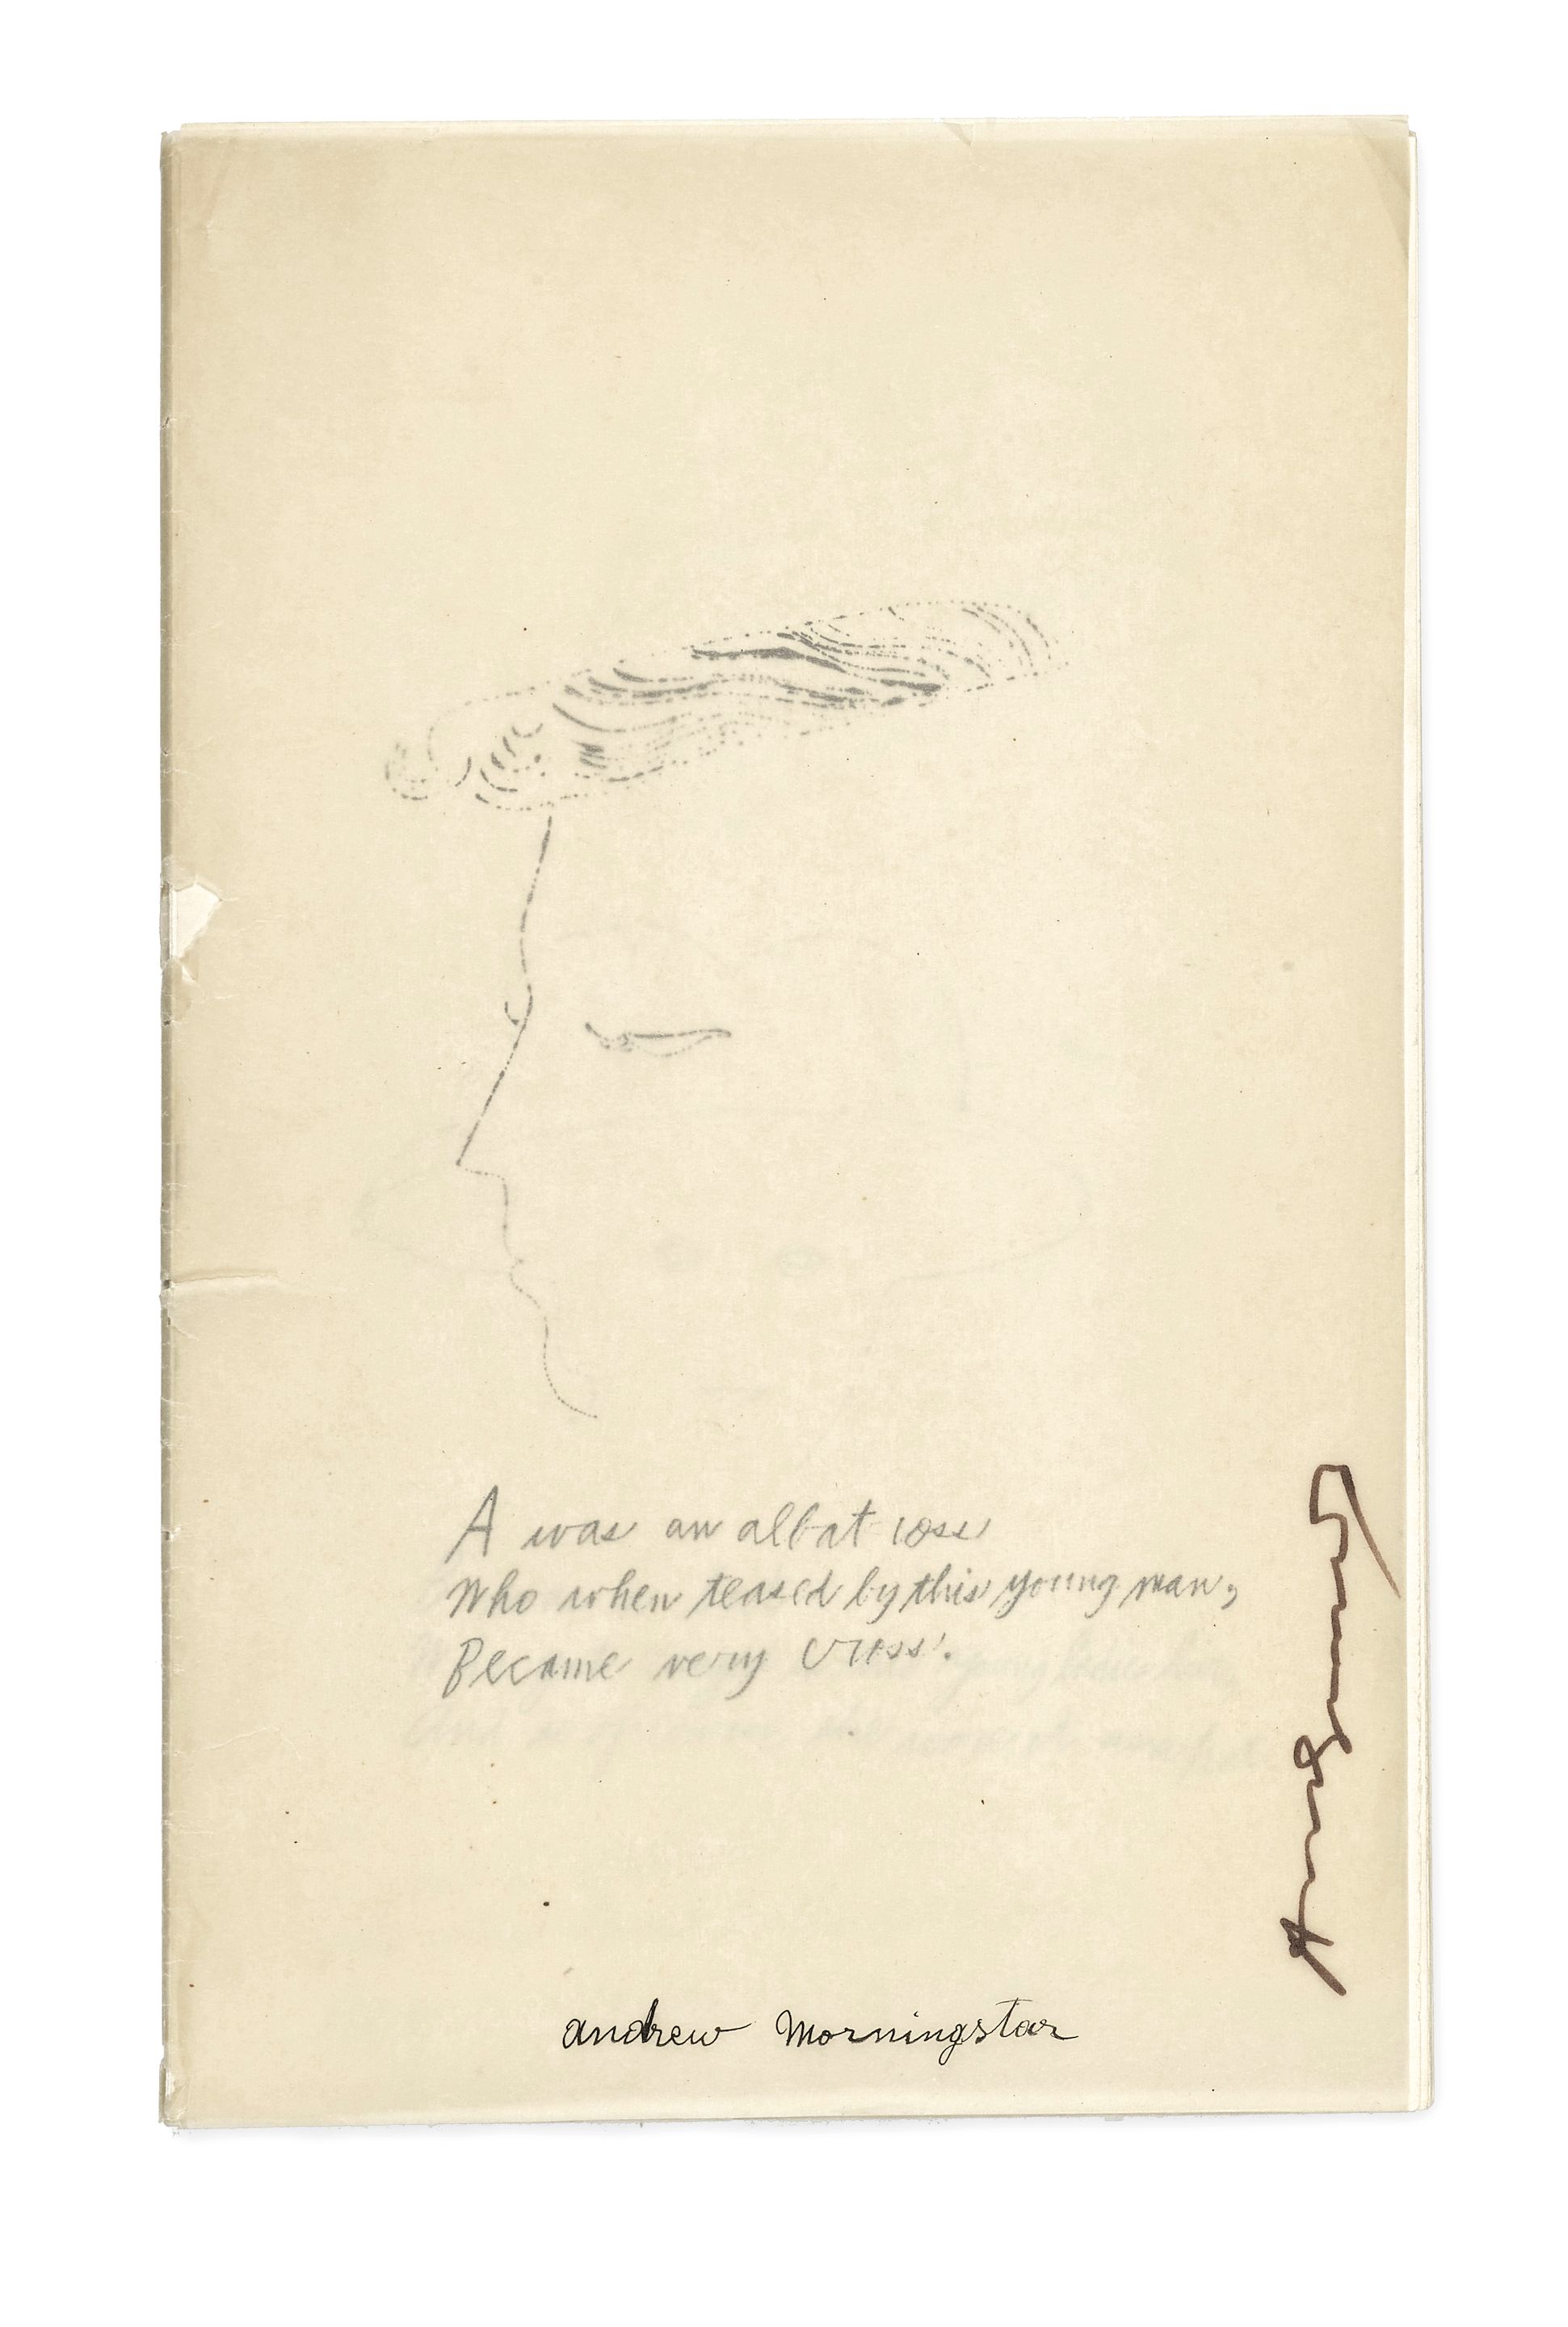 A was an albatross
Who when teased by this young man,
Became very cross.
andrew Morningstar